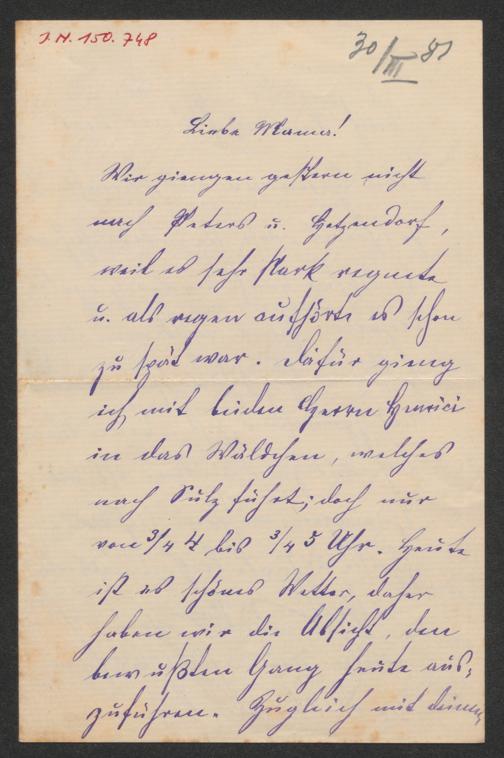 J. N. 150.748
30/III 81
Liebe Mama!
Wir giengen gestern nicht
nach Peters u. Hetzendorf,
weil es sehr stark regnete
u. als regen aufhörte es schon
zu spät war. Dafür gieng
ich mit beiden Herrn Henrici
in das Wäldchen, welches
nach Sulz führt; doch nur
von 3/4 4 bis 3/4 5 Uhr. Heute
ist es schönes Wetter, daher
haben wir die Absicht, den
bewußten Gang heute aus-
zuführen. Zugleich mit deinem